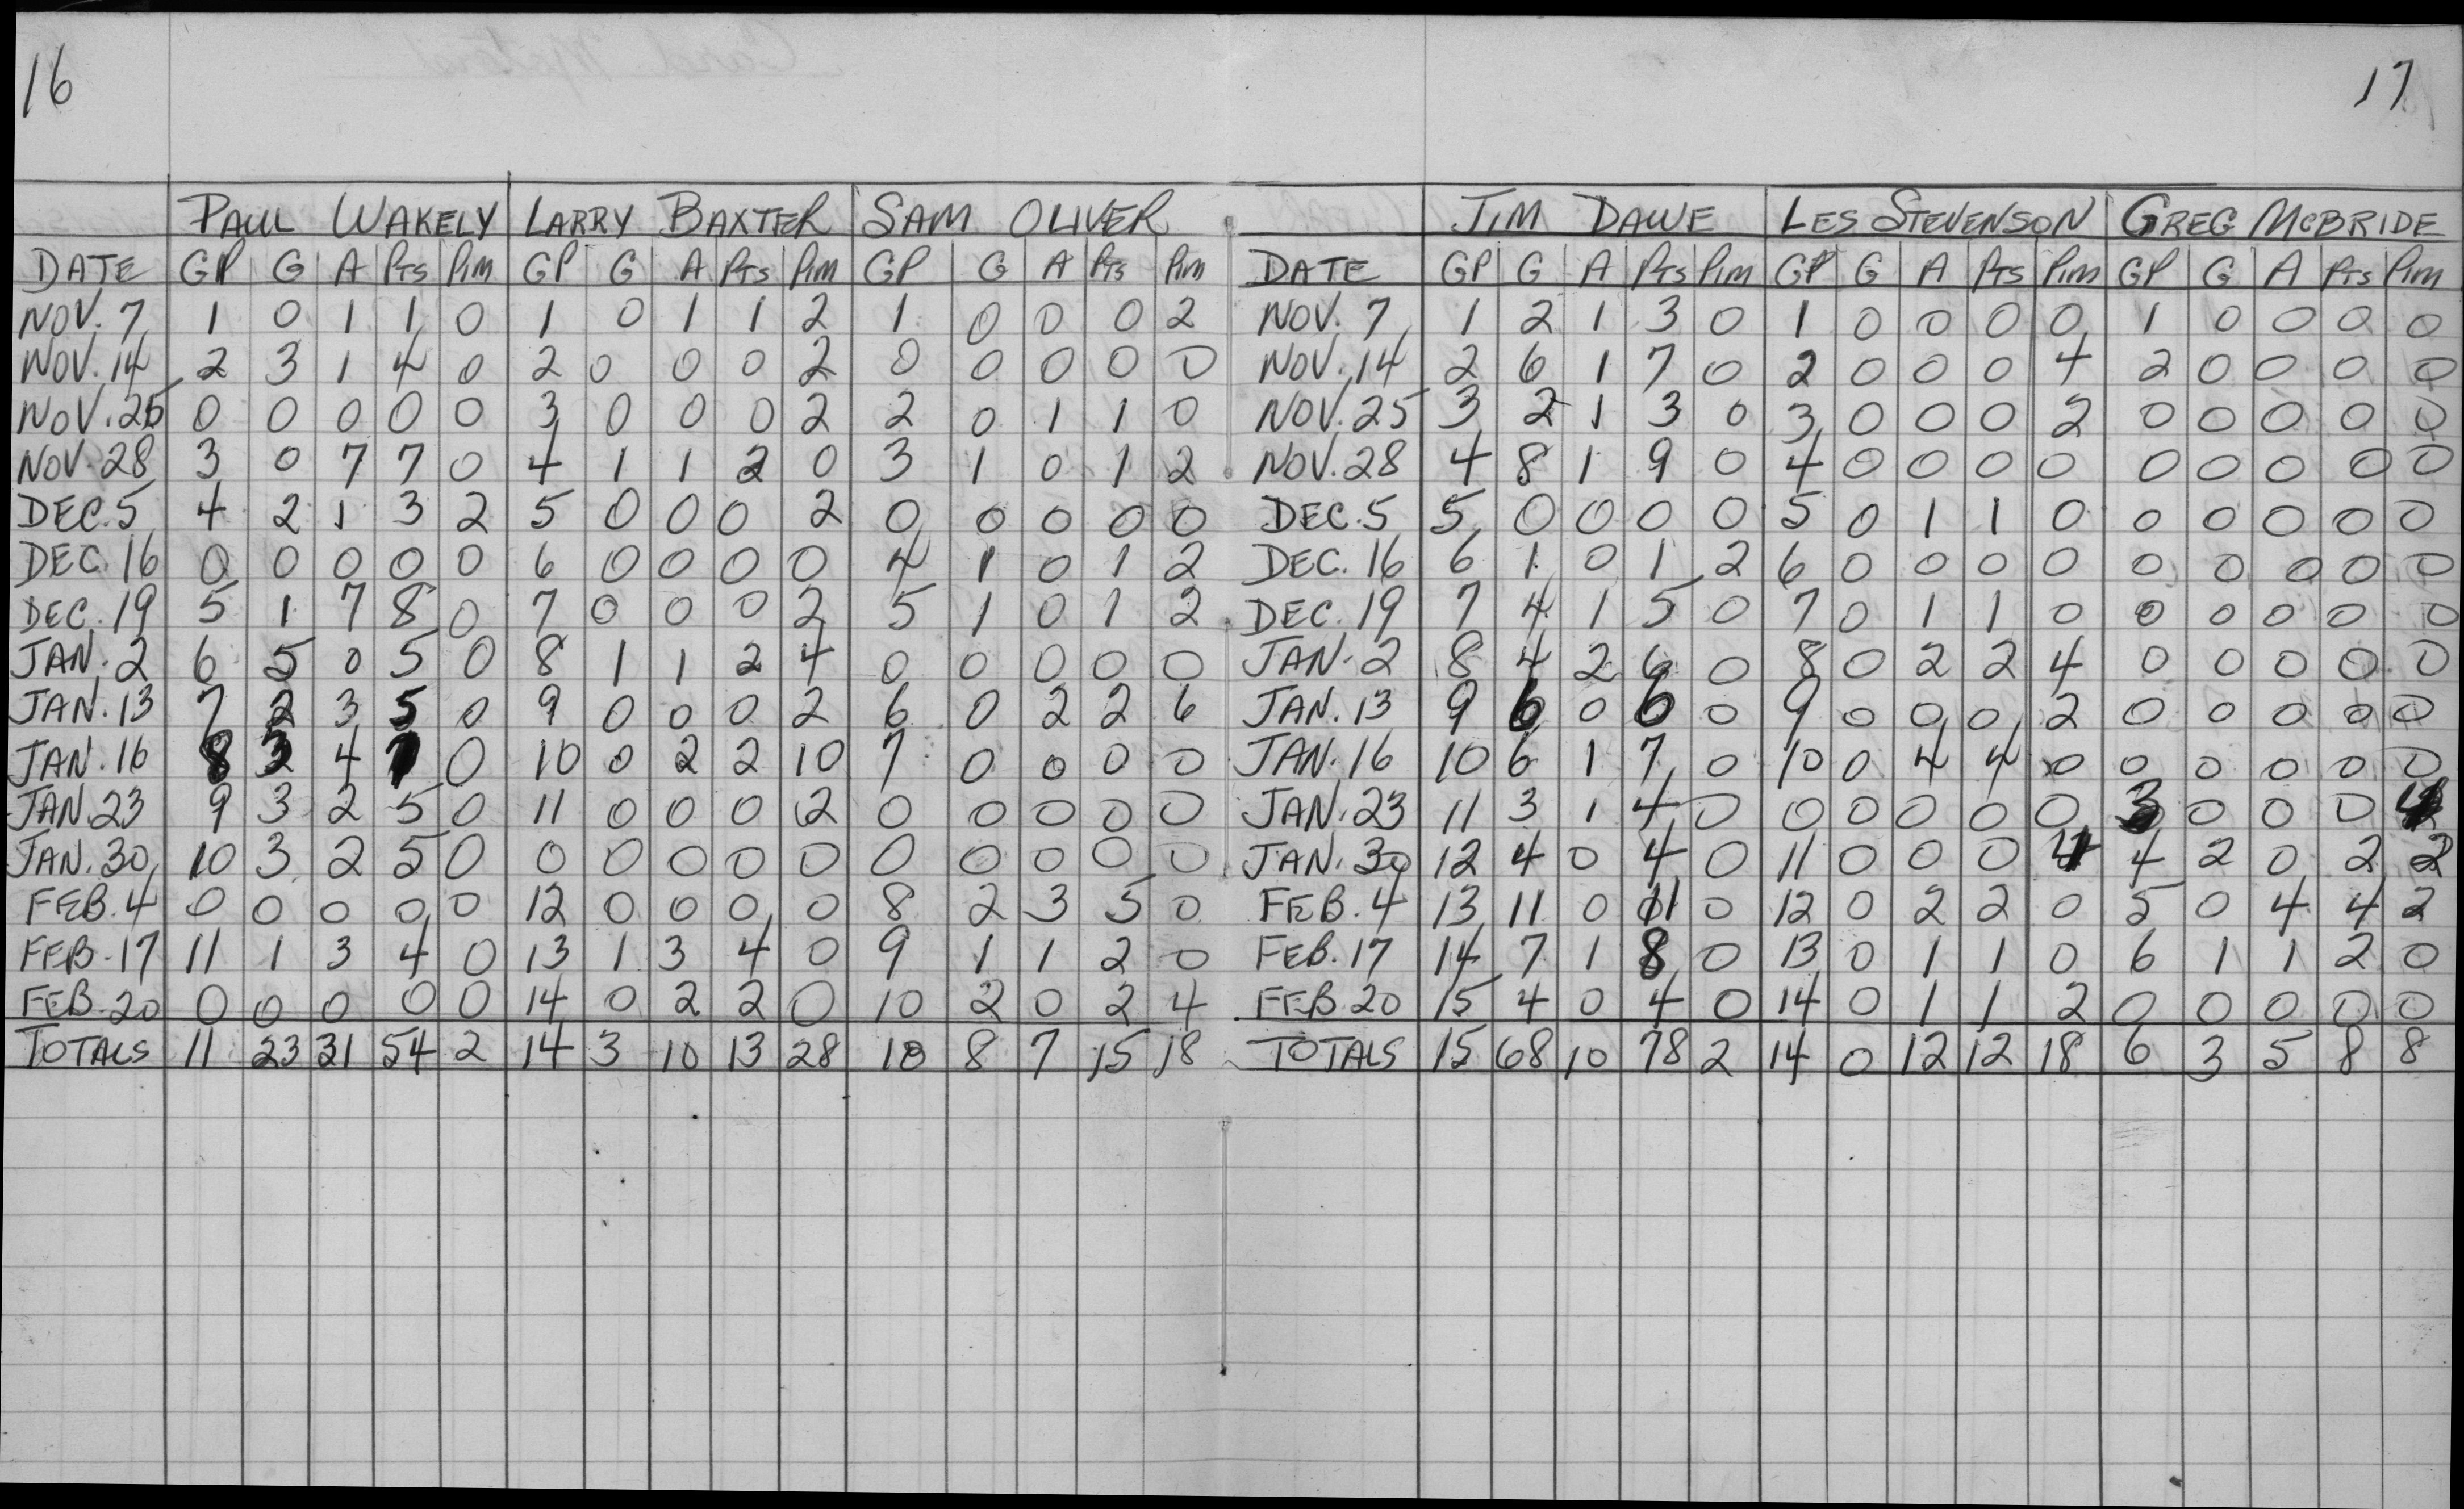 16 17
PAUL WAKELY LARRY BAXTER SAM OLIVER JIM DAWE LES STEVENSON GREG McBRIDE
DATE GP G A Pts Pim GP G A Pts Pim GP G A Pts Pim DATE GP G A Pts Pim GP G A Pts Pim GP G A Pts Pim
NOV. 7 1 0 1 1 0 1 0 1 1 2 1 0 0 0 2 NOV. 7 1 2 1 3 0 1 0 0 0 0 1 0 0 0 0
NOV. 14 2 3 1 4 0 2 0 0 0 2 0 0 0 0 0 NOV. 14 2 6 1 7 0 2 0 0 0 4 2 0 0 0 0
NOV. 25 0 0 0 0 0 3 0 0 0 2 2 0 1 1 0 NOV. 25 3 2 1 3 0 3 0 0 0 2 0 0 0 0 0
NOV. 28 3 0 7 7 0 4 1 1 2 0 3 1 0 1 2 NOV. 28 4 8 1 9 0 4 0 0 0 0 0 0 0 0 0
DEC. 5 4 2 1 3 2 5 0 0 0 2 0 0 0 0 0 DEC. 5 5 0 0 0 0 5 0 1 1 0 0 0 0 0 0
DEC. 16 0 0 0 0 0 6 0 0 0 0 4 1 0 1 2 DEC. 16 6 1 0 1 2 6 0 0 0 0 0 0 0 0 0
DEC. 19 5 1 7 8 0 7 0 0 0 2 5 1 0 1 2 DEC. 19 7 4 1 5 0 7 0 1 1 0 0 0 0 0 0
JAN. 2 6 5 0 5 0 8 1 1 2 4 0 0 0 0 0 JAN. 2 8 4 2 6 0 8 0 2 2 4 0 0 0 0 0
JAN. 13 7 2 3 5 0 9 0 0 0 2 6 0 2 2 6 JAN. 13 9 6 0 6 0 9 0 0 0 2 0 0 0 0 0
JAN. 16 8 3 4 7 0 10 0 2 2 10 7 0 0 0 0 JAN. 16 10 6 1 7 0 10 0 4 4 0 0 0 0 0 0
JAN. 23 9 3 2 5 0 11 0 0 0 2 0 0 0 0 0 JAN. 23 11 3 1 4 0 0 0 0 0 0 3 0 0 0 4
JAN. 30 10 3 2 5 0 0 0 0 0 0 0 0 0 0 0 JAN. 30 12 4 0 4 0 11 0 0 0 4 4 2 0 2 2
FEB. 4 0 0 0 0 0 12 0 0 0 0 8 2 3 5 0 FEB. 4 13 11 0 11 0 12 0 2 2 0 5 0 4 4 2
FEB. 17 11 1 3 4 0 13 1 3 4 0 9 1 1 2 0 FEB. 17 14 7 1 8 0 13 0 1 1 0 6 1 1 2 0
FEB. 20 0 0 0 0 0 14 0 2 2 0 10 2 0 2 4 FEB. 20 15 4 0 4 0 14 0 1 1 2 0 0 0 0 0
TOTALS 11 23 31 54 2 14 3 10 13 28 10 8 7 15 18 TOTALS 15 68 10 78 2 14 0 12 12 18 6 3 5 8 8